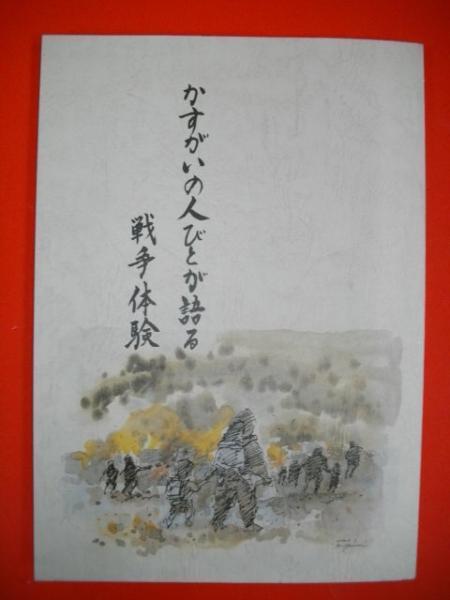 かすがいの人びとが語る
戦争体験